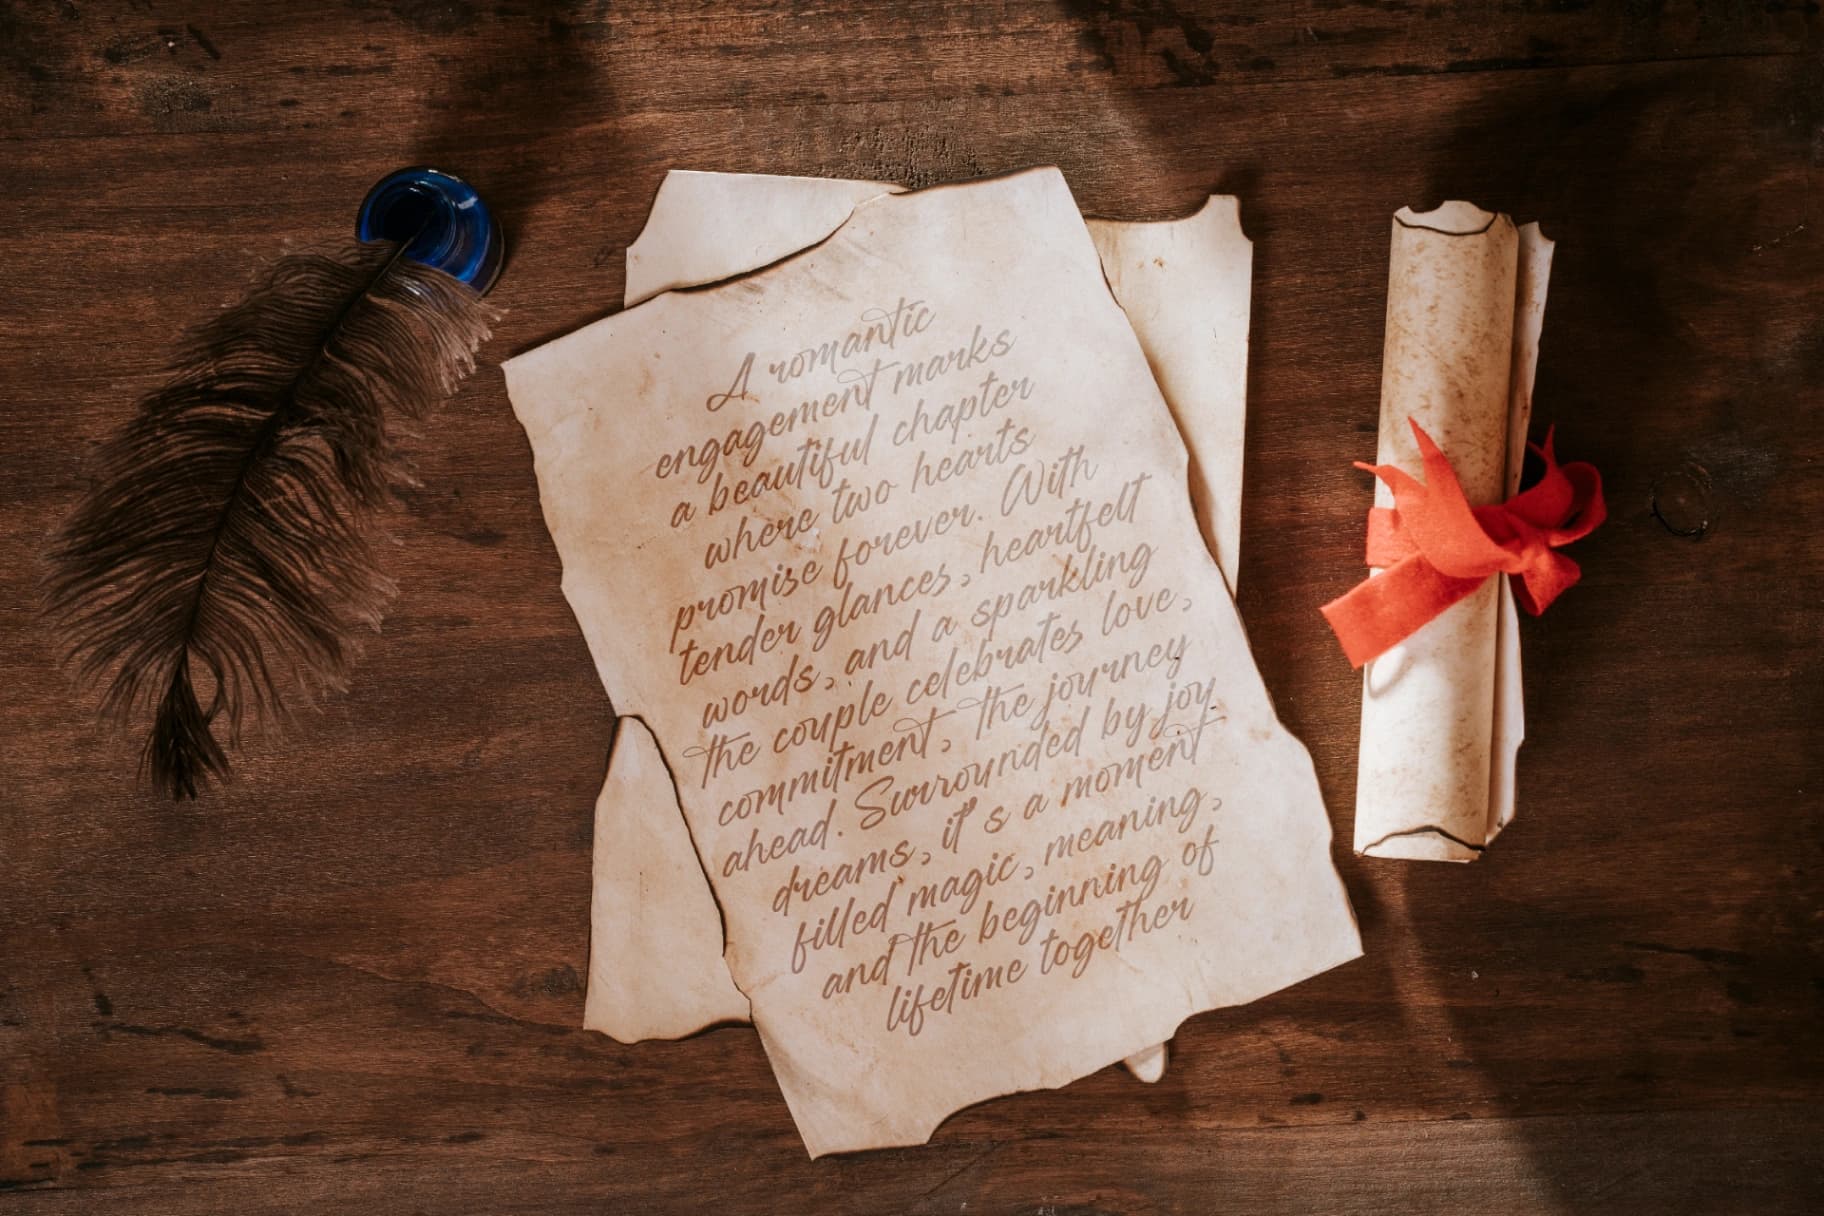 A romantic
engagement marks
a beautiful chapter
where two hearts
promise forever. With
tender glances, heartfelt
words, and a sparkling
the couple celebrates love,
commitment, the journey
ahead. Surrounded by joy
dreams, it's a moment
filled magic, meaning,
and the beginning of
lifetime together